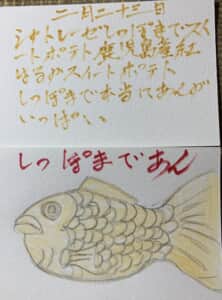 二月二十三日
シャトレーゼしっぽまでスイ
ートポテト鹿児島産紅
はるかスイートポテト
しっぽまで本当にあんが
いっぱい
しっぽまであん